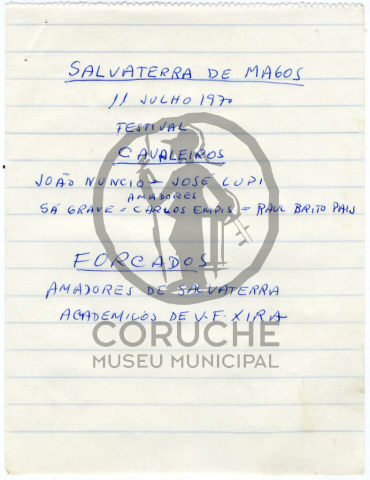 SALVATERRA DE MAGOS
11 JULHO 1970
FESTIVAL
CAVALEIROS
JOÃO NUNCIO = JOSE LUPI
AMADORES
SÁ GRAVE = CARLOS EMPIS = RAUL BRITO PAIS
FORCADOS
AMADORES DE SALVATERRA
ACADEMICOS DE V.F. XIRA
CORUCHE
MUSEU MUNICIPAL